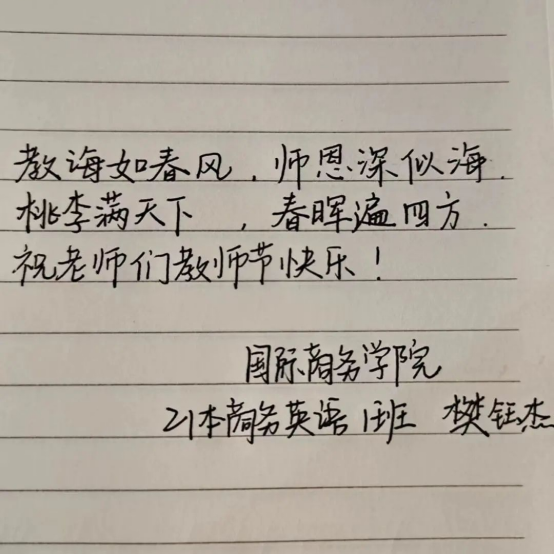 教诲如春风,师恩深似海.
桃李满天下,春晖遍四方.
祝老师们教师节快乐!
国际商务学院
21本商务英语1班 樊钰杰